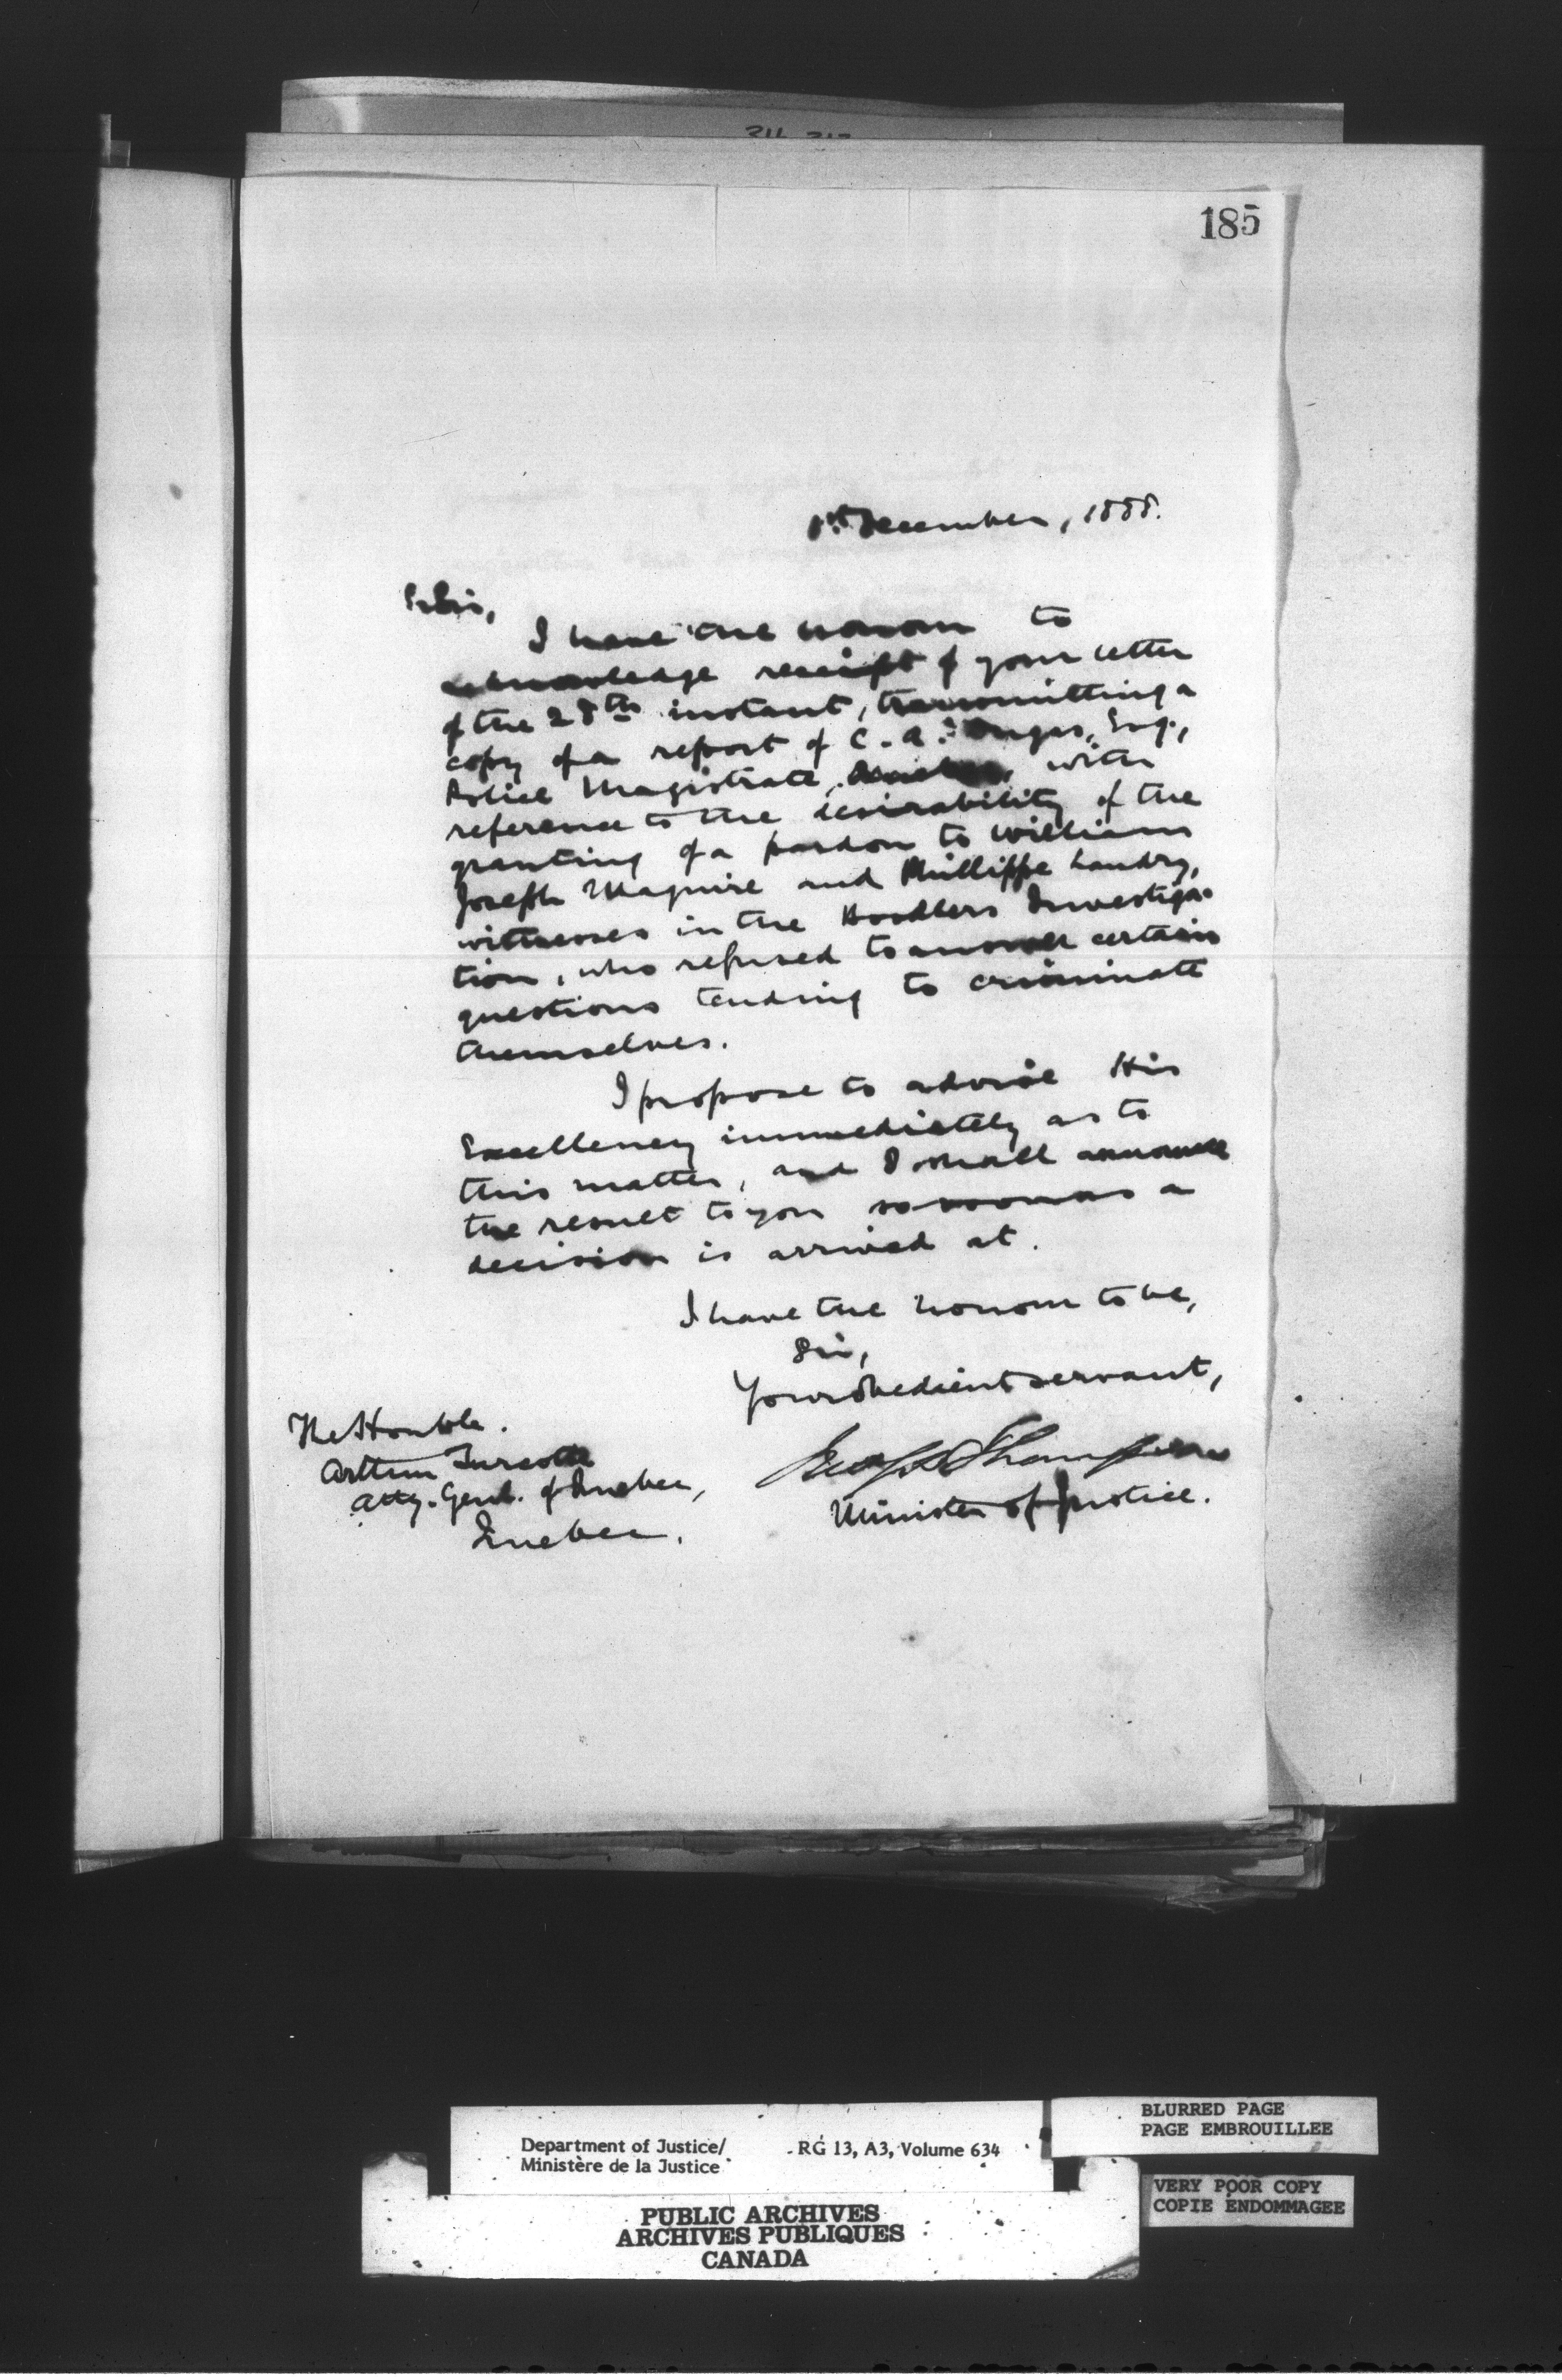 185
1st December, 1888.
Sir,
I have the honour to
acknowledge receipt of your letter
of the 28th instant, transmitting a
copy of a report of C. A. Esq.,
Police Magistrate, with
reference to the desirability of the
granting of a pardon to William
Joseph Maguire and Phillippe Landry,
witnesses in the Boodlers Investiga-
tion, who refused to answer certain
questions tending to criminate
themselves.
I propose to advise His
Excellency immediately as to
this matter, and I shall announce
the result to you so soon as a
decision is arrived at.
I have the honour to be,
Sir,
Your obedient servant,
Jno. S. D. Thompson
Minister of Justice.
The Honble.
Arthur Turcotte
Atty. Genl. of Quebec,
Quebec.
Department of Justice/ RG 13, A3, Volume 634
Ministère de la Justice
PUBLIC ARCHIVES
ARCHIVES PUBLIQUES
CANADA
BLURRED PAGE
PAGE EMBROUILLEE
VERY POOR COPY
COPIE ENDOMMAGEE